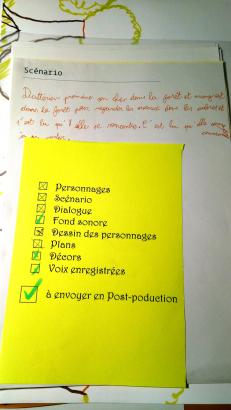 Scénario
promène son dans la forêt et
dans la forêt pour regarder les dans les arbres et
c'est là qu' elle se rencontre. C'est là qu'elle
Personnages
Scénario
Dialogue
Fond sonore
Dessin des personnages
Plans
Décors
Voix enregistrées
à envoyer en Post-poduction